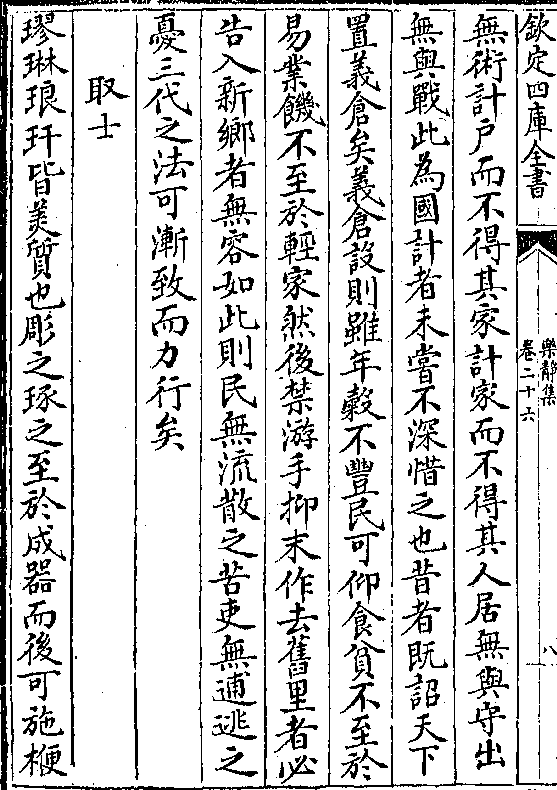 欽定四庫全書
樂靜集
卷二十六
八
無術計戶而不得其家計家而不得其人居無與守出
無與戰此為國計者未嘗不深惜之也昔者既詔天下
置義倉矣義倉設則雖年穀不豐民可仰食貧不至於
易業饑不至於輕家然後禁游手抑末作去舊里者必
告入新鄉者無容如此則民無流散之苦吏無逋逃之
憂三代之法可漸致而力行矣
取士
璆琳琅玕皆美質也彫之琢之至於成器而後可施楩